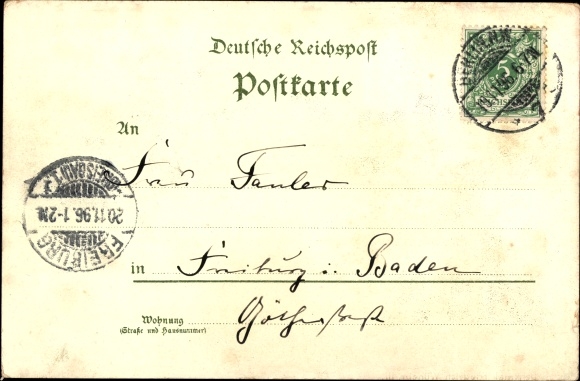 Deutsche Reichspost
Postkarte
5
An
Frau Fauler
20.11.96. 1-2N.
FREIBURG
in Freiburg i. Baden
Wohnung
(Straße und Hausnummer)